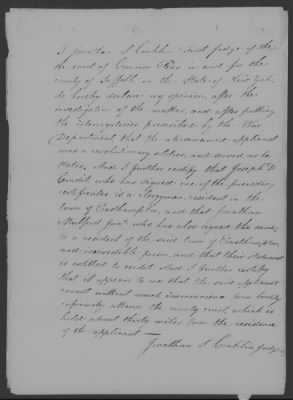 I Jonathan S Conklin first judge of the
the court of Common Pleas in and for the
county of Suffolk in the State of New York
do hereby declare my opinion, after the
investigation of the matter, and after putting
the interrogatories prescribed by the War
Department, that the abovenamed applicant
was a revolutionary soldier, and served as he
states, And I further certify that Joseph D
Condit, who has signed one of the preceding
certificates is a clergyman, resident in the
town of Easthampton, and that Jonathan
Mulford Junr who has also signed the same,
is a resident of the said town of Easthampton,
and a credible person, and that their statement
is entitled to credit And I further certify
that it appears to me that the said applicant
cannot without much inconvenience from bodily
infirmity attend the county court, which is
held about thirty miles from the residence
of the applicant —
Jonathan S Conklin, Judge